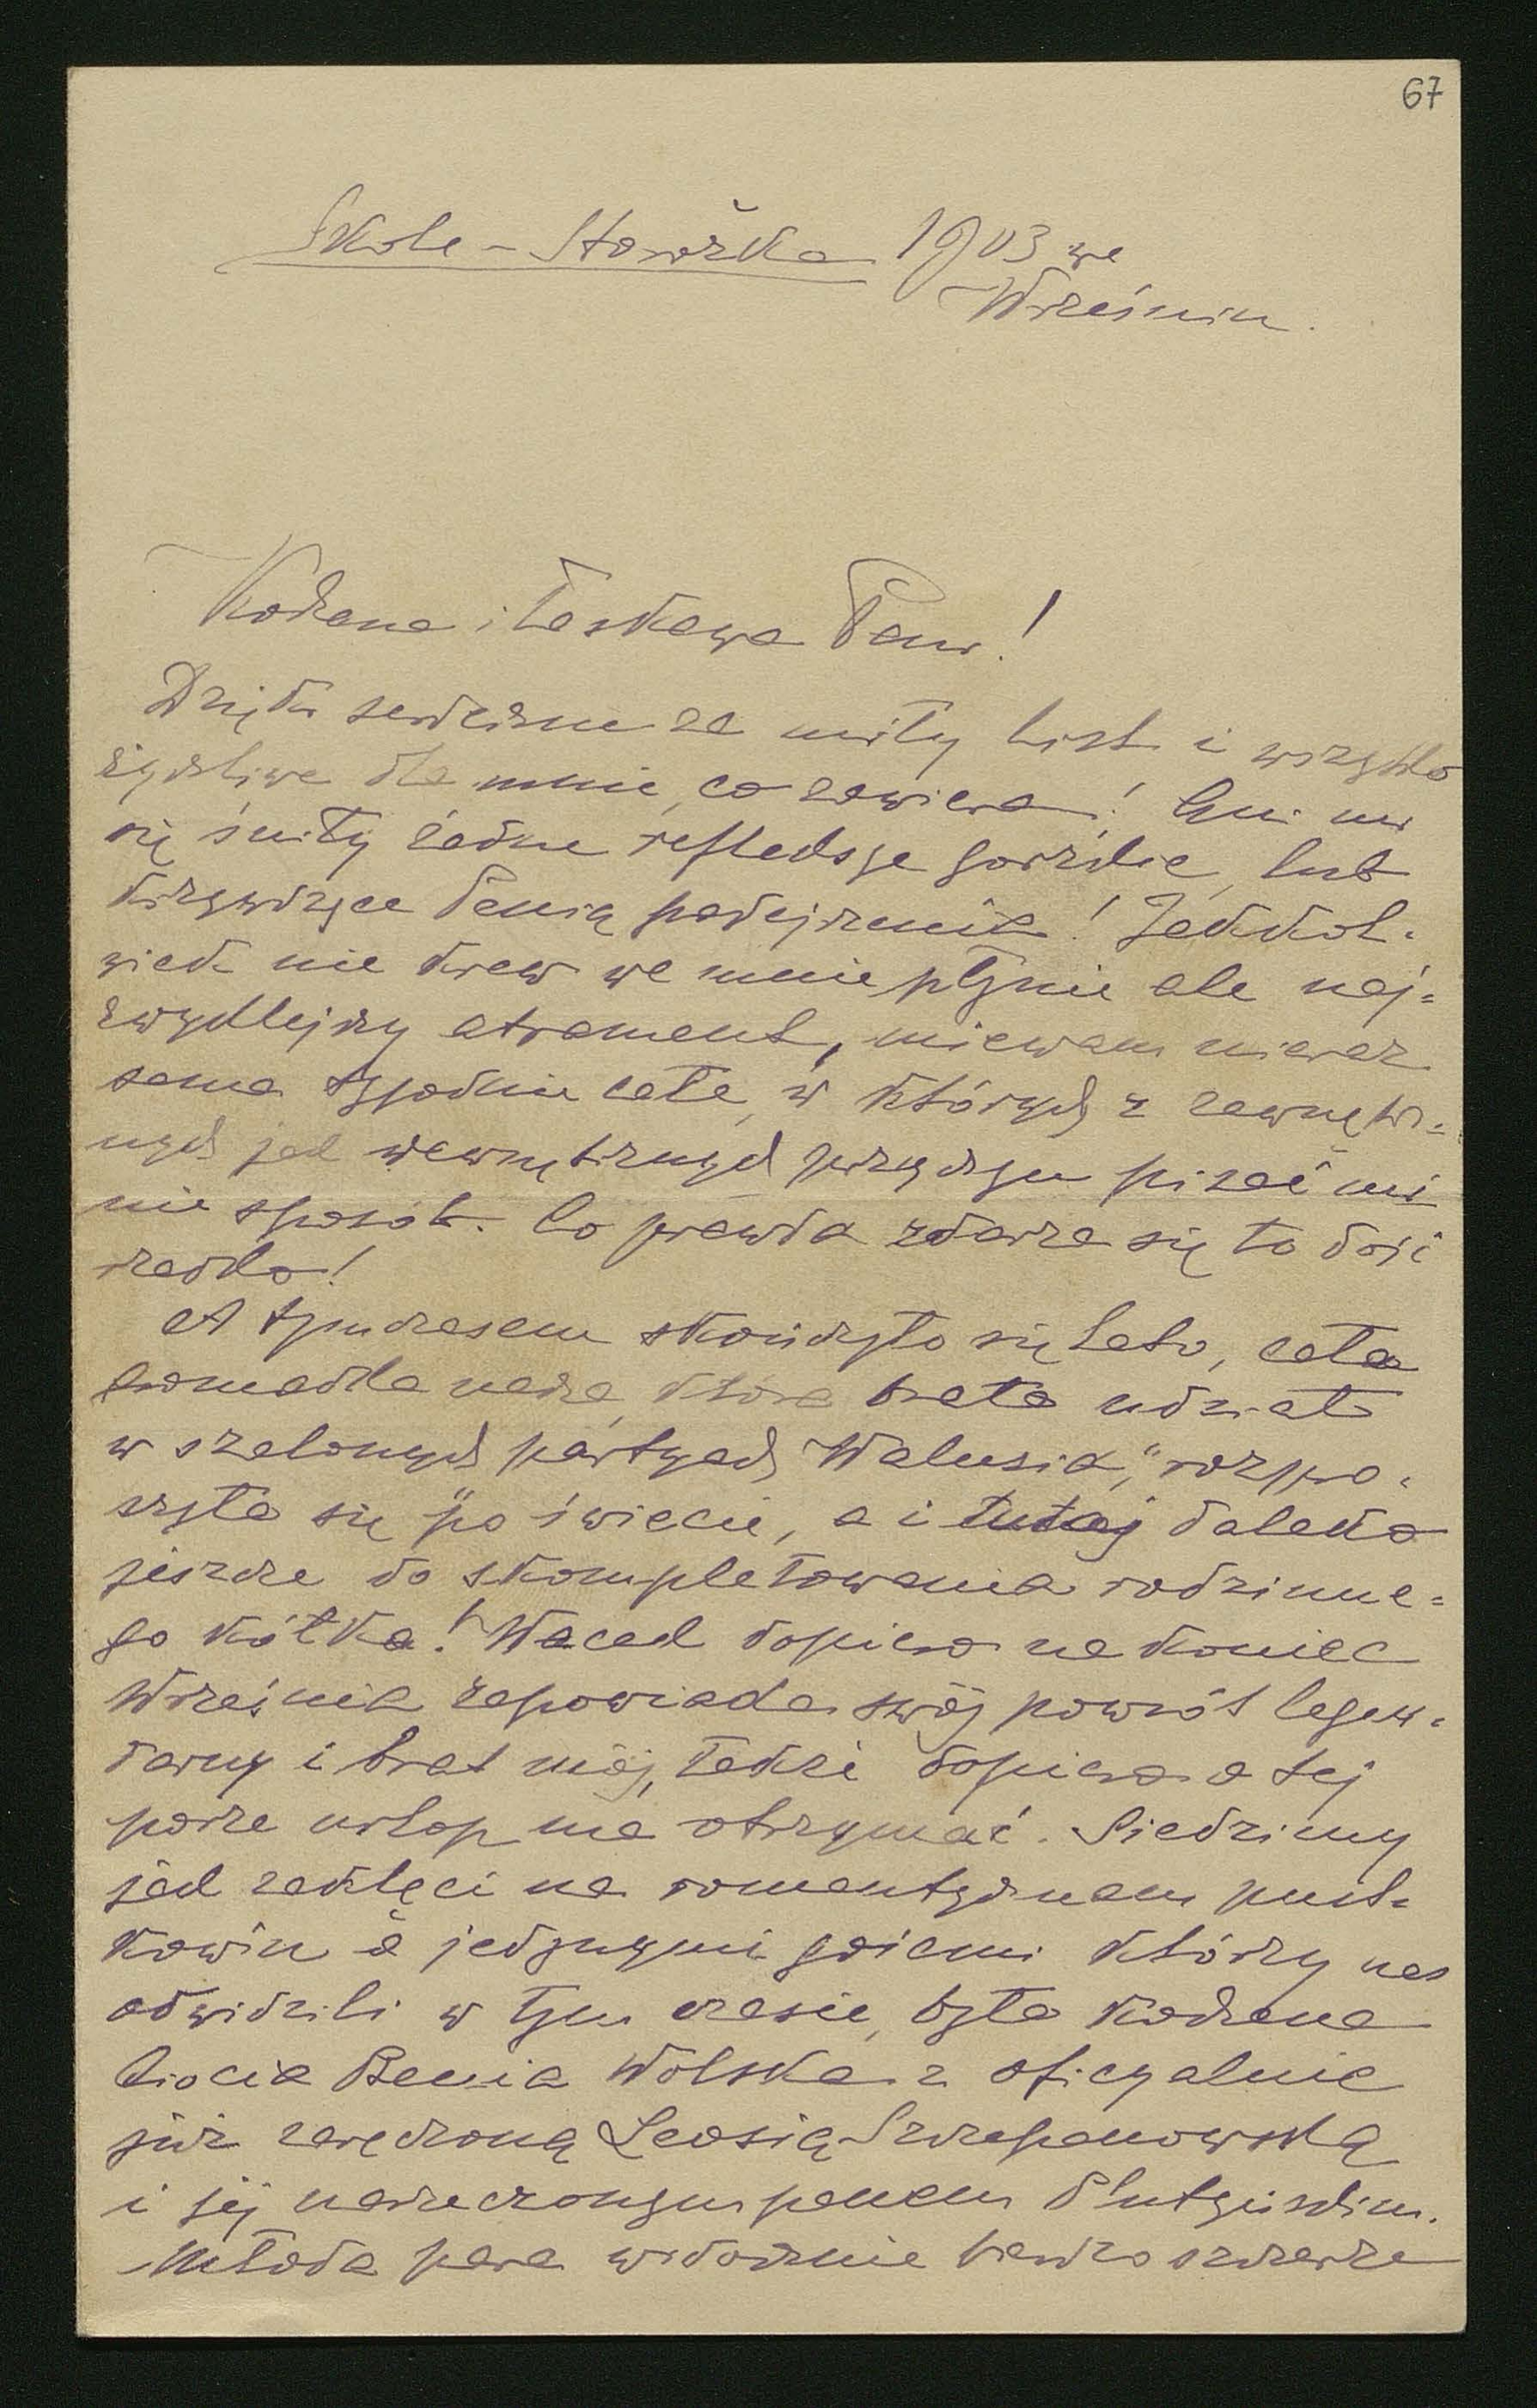 67
Skole - Storożka 1903 we
Wrześniu.
Kochana i łaskawa Pani!
Dzięki serdeczne za miły list i wszystko
życzliwe dla mnie, co zawiera! Ani mi
się śniły żadne refleksye gorzkie, lub
krzywdzące Panią podejrzenia! Jakkol-
wiek nie krew we mnie płynie ale naj-
zwyklejszy atrament, miewam nieraz
sama tygodnie całe, w których z zewnętrz-
nych jak wewnętrznych przyczyn pisać mi
nie sposób. Co prawda zdarza się to dość
rzadko!
A tymczasem skończyło się lato, cała
gromadka nasza, która brała udział
w szalonych partyach "Walusia", rozpro-
szyła się po świecie, a i tutaj daleko
jeszcze do skompletowania rodzinne-
go kółka! Wacek dopiero na koniec
Września zapowiada swój powrót legen-
darny i brat mój, także dopiero o tej
porze urlop ma otrzymać. Siedzimy
jak zaklęci na romantycznem pust-
kowiu a jedynymi gośćmi którzy nas
odwidzili w tym czasie, była kochana
Ciocia Benia Wolska z oficyalnie
już zaręczoną Leosią Szczepanowską
i jej narzeczonym panem Plutyńskim.
Młoda para widocznie bardzo szczerze